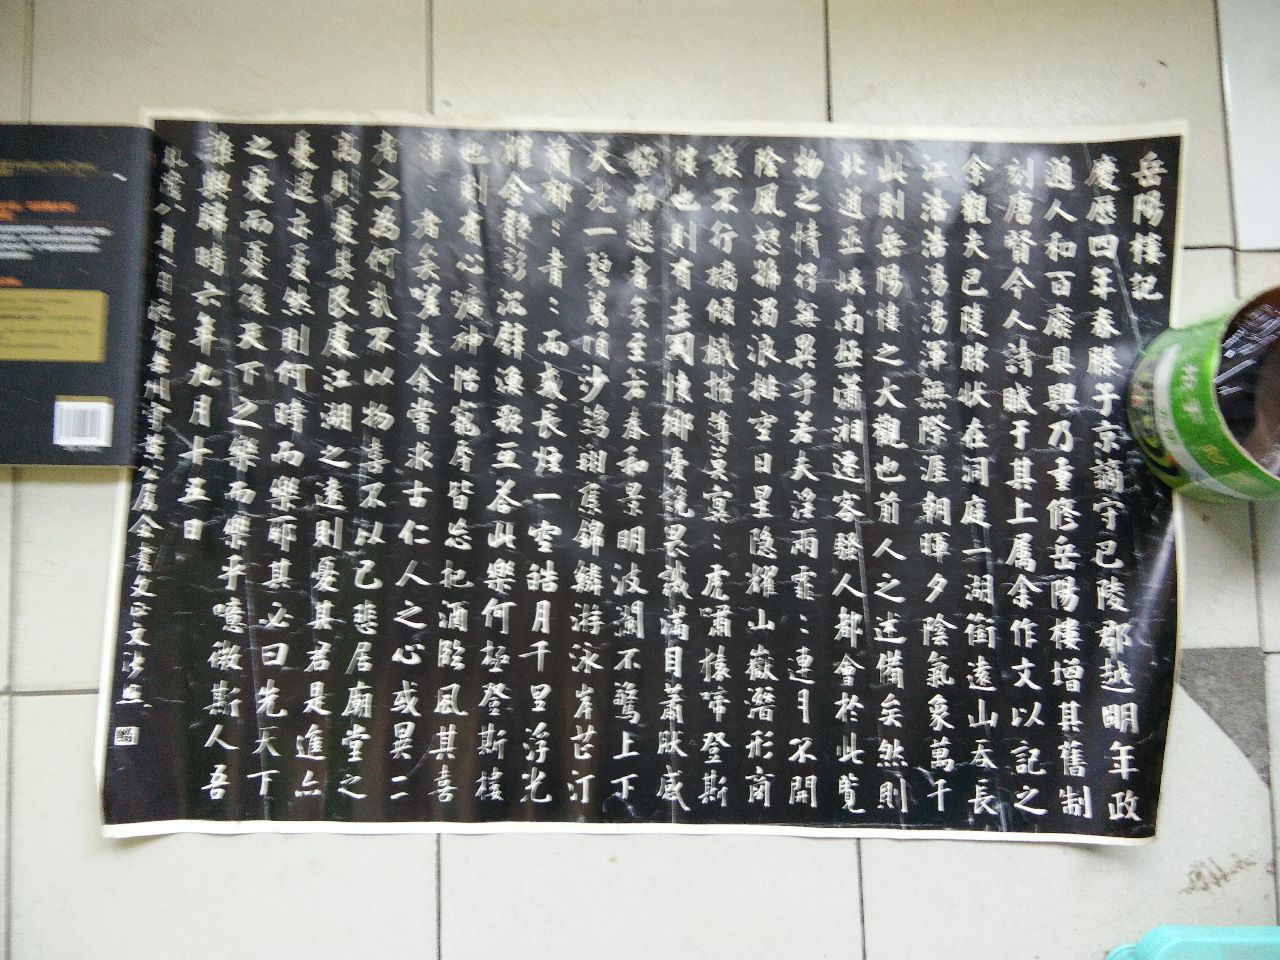 岳陽樓記
慶歷四年春滕子京謫守巴陵郡越明年政
通人和百廢具興乃重修岳陽樓增其舊制
刻唐賢今人詩賦于其上属余作文以記之
余觀夫巴陵勝狀在洞庭一湖銜遠山吞長
江浩浩湯湯渾無際涯朝暉夕陰氣象萬千
此則岳陽樓之大觀也前人之述備矣然則
北通巫峽南極瀟湘遷客騷人都會於此覽
物之情得無異乎若夫淫雨霏：連月不開
陰風怒號濁浪排空日星隐耀山嶽潛形商
旅不行檣傾檝摧薄莫冥：虎嘯猿啼登斯
樓也則有去國懷鄉憂讒畏譏滿目蕭肰感
極而悲者矣至若春和景明波瀾不驚上下
天光一碧萬頃沙鷗翔集錦鱗游泳岸芷汀
蘭郁：青：而或長煙一空皓月千里浮光
耀金靜影沉璧漁歌互答此樂何極登斯樓
也則有心曠神怡寵辱皆忘把酒臨風其喜
洋：者矣嗟夫余嘗求古仁人之心或異二
者之為何哉不以物喜不以己悲居廟堂之
高則憂其民處江湖之遠則憂其君是進亦
憂退亦憂然則何時而樂耶其必曰先天下
之憂而憂後天下之樂而樂乎噫微斯人吾
誰與歸時六年九月十五日